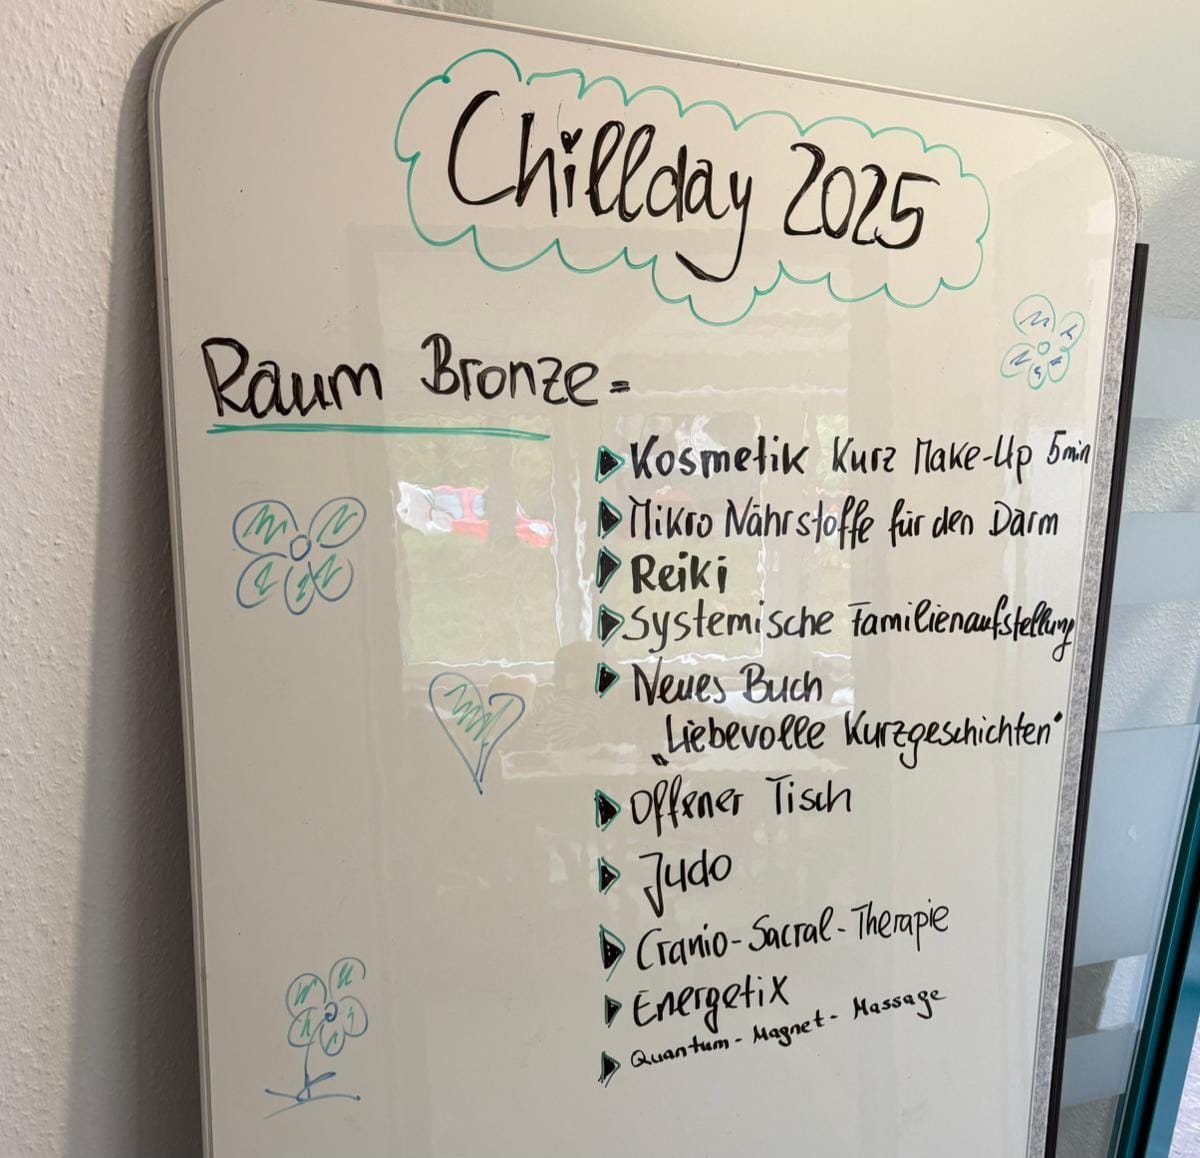 Chillday 2025
Raum Bronze =
Kosmetik Kurz Make-Up 5min
Mikro Nährstoffe für den Darm
Reiki
Systemische Familienaufstellung
Neues Buch
„Liebevolle Kurzgeschichten"
Offener Tisch
Judo
Cranio-Sacral-Therapie
Energetix
Quantum-Magnet-Massage